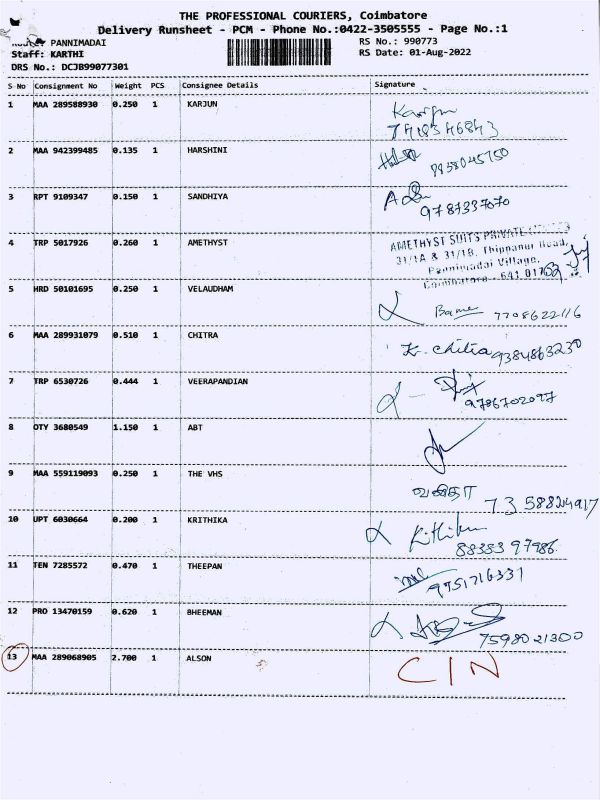 THE PROFESSIONAL COURIERS, Coimbatore
Delivery Runsheet - PCM - Phone No.:0422-3505555 - Page No.:1
PANNIMADAI RS No.: 990773
Staff: KARTHI RS Date: 01-Aug-2022
DRS No.: DCJB99077301
S No Consignment No Weight PCS Consignee Details Signature
1 MAA 289588930 0.250 1 KARJUN Karjun
7418346843
2 MAA 942399485 0.135 1 HARSHINI
9858045750
3 RPT 9109347 0.150 1 SANDHIYA
9787337070
4 TRP 5017926 0.260 1 AMETHYST AMETHYST SUITS PRIVATE
31/1A & 31/1B, Thippanur Road,
Pannimadai Village,
Coimbatore - 641 017
5 HRD 50101695 0.250 1 VELAUDHAM
7708622116
6 MAA 289931079 0.510 1 CHITRA K. Chitra 9384863230
7 TRP 6530726 0.444 1 VEERAPANDIAN
9786702097
8 OTY 3680549 1.150 1 ABT
9 MAA 559119093 0.250 1 THE VHS வனிதா
7358824917
10 UPT 6030664 0.200 1 KRITHIKA Krithika
8838397986
11 TEN 7285572 0.470 1 THEEPAN
9951716331
12 PRO 13470159 0.620 1 BHEEMAN
7598021300
13 MAA 289068905 2.700 1 ALSON CIN